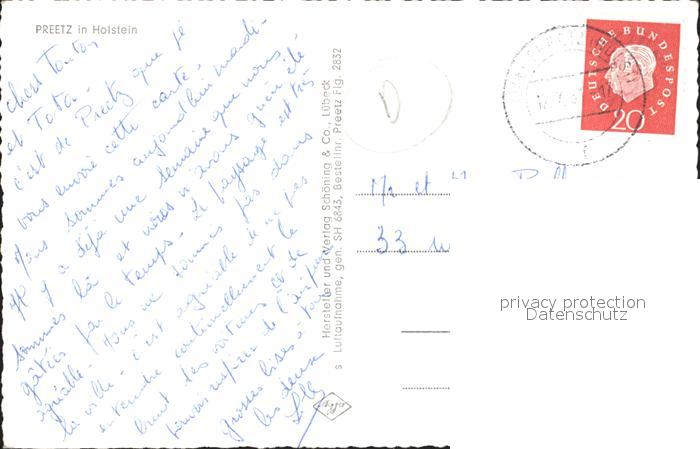 PREETZ in Holstein
chers Tontos
et Tata.
c'est de Preetz que je
vous envoie cette carte.
Nous sommes aujourd'hui mardi.
Il y a déjà une semaine que nous
sommes là et nous n'avons guère été
gâtées par le temps. Le paysage est très
agréable. Nous ne sommes pas dans
la ville. c'est agréable de ne pas
entendre continuellement le
bruit des voitures et de
pouvoir respirer de l'air pur
grosses bises à tous
les deux
Hersteller und Verlag Schöning & Co., Lübeck
s Luftaufnahme, gen. SH 6843, Bestellnr. Preetz Flg. 2832
DEUTSCHE BUNDESPOST
20
Mr et
33
privacy protection
Datenschutz